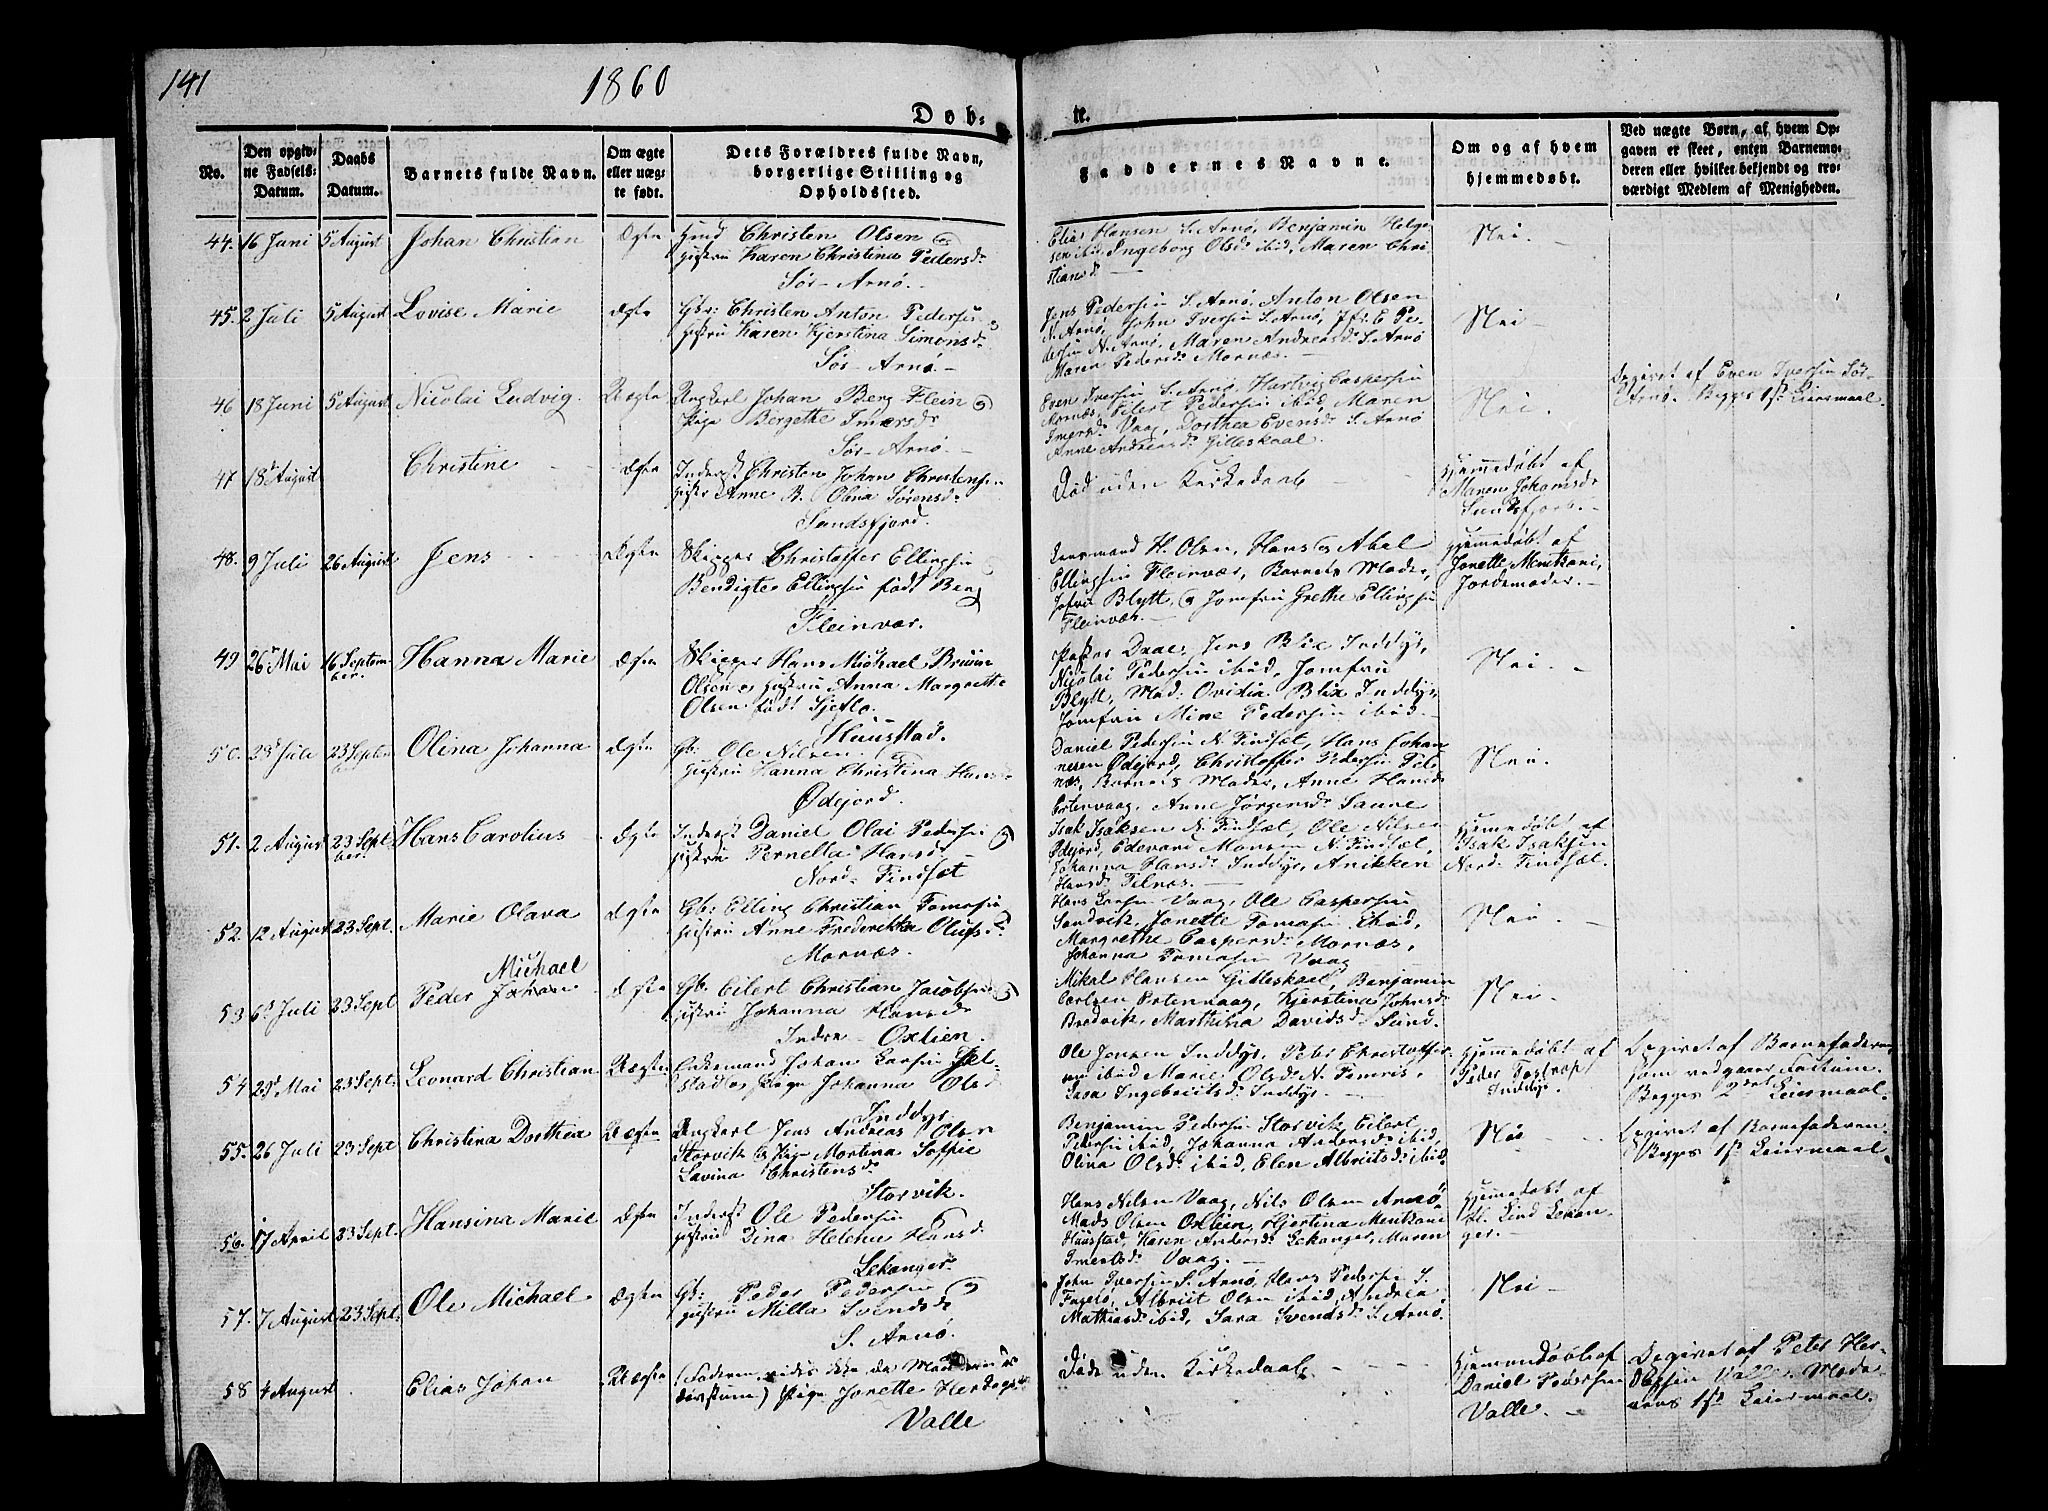 141
1860
Døb-
te.
No.
Den opgiv-
ne Fødsels-
Datum.
Daabs
Datum.
Barnets fulde Navn.
Om ægte
eller uæg-
te født.
Dets Forældres fulde Navn,
borgerlige Stilling og
Opholdssted.
Faddernes Navne.
Om og af hvem
hjemmedøbt.
Ved uægte Børn, af hvem Op-
gaven er skeet, enten Barnemo-
deren eller hvilket bekjendt og tro-
værdigt Medlem af Menigheden.
44. 16 Juni 5 August Johan Christian Ægte Christen Olsen
Hustru Karen Christina Peders.
Sør-Arnø.
Elias Hansen S. Arnø, Benjamin Helge-
sen ibid, Ingeborg Olsd. ibid, Maren Chri-
stiansd.
Nei.
45. 2 Juli 5 August Lovise Marie Ægte Gbr: Christen Anton Pedersen
Hustru Karen Kjerstina Simonsd.
Sør-Arnø
Jens Pedersen S. Arnø, Anton Olsen
N. Arnø, John Iversen S. Arnø, E Pe-
dersen N. Arnø, Maren Andreasd. S. Arnø
Maren Pedersd. Mornæs.
Nei
46 18 Juni 5 August Nicolai Ludvig. Uægte Ungkarl Johan Berg Flein
Pige Bergethe Imersd.
Sør-Arnø.
Even Iversen S. Arnø, Hartvig Caspersen
Mornæs, Eilert Pedersen ibid, Maren
Imersd. Vaag, Dorthea Evensd. S. Arnø
Anne Andreasd. Gilleskaal.
Nei.
Opgivet af Even Iversen Sør-
Arnø. Begges 1ste Leiermaal.
47 18 August Christine Ægte Inderst Christen Johan Christensen
Hustru Anne B. Olina Sørensd.
Sundsfjord.
Død uden Kirkedaab
Hjemmedøbt af
Maren Johansd.
Sundsfjord.
48. 9 Juli 26 August Jens Ægte Skipper Christoffer Ellingsen
Bendigte Ellingsen født Berg
Fleinvær.
Leensmand H. Olsen, Hans og Abel
Ellingsen Fleinvær, Barnets Moder,
Jofru Blytt, og Jomfru Grethe Ellingsen
Fleinvær.
Hjemmedøbt af
Jonette Mentzoni,
Jordemoder.
49 26 Mai 16 Septem-
ber. Hanna Marie Ægte Skipper Hans Michael Bruun
Olsen og Hustru Anna Margrethe
Olsen født Sjetlo.
Haustad.
Pastor Daae, Jens Blix Inddyr,
Nicolai Pedersen ibid, Jomfru
Blytt, Mad: Ovidia Blix Inddyr,
Jomfru Mine Pedersen ibid.
Nei.
50. 23 Juli 23 Septbr Olina Johanna Ægte Gb: Ole Nilsen
Hustru Hanna Christina Hansd.
Ødejord.
Daniel Pedersen N. Findsæt, Hans Johan-
nesen Ødejord, Christoffer Pedersen Fel-
næs, Barnets Moder, Anne Hansd.
Estenvaag, Anne Jørgensd. Saune
Nei.
51. 2 August 23 Sept
ber. Hans Carolius Ægte Inderst Daniel Olai Pedersen
Hustru Pernella Hansd.
Nord-Findsæt
Isak Isaksen N. Findsæt, Ole Nilsen
Ødejord, Edevard Monsen N. Findsæt,
Johanna Hansd. Inddyr, Anikken
Hansd. Felnæs.
Hjemmedøbt af
Isak Isaksen
Nord-Findsæt.
52. 12 August 23 Sept. Marie Olava Ægte Gb: Elling Christian Tomesen
Hustru Anne Frederikka Olufsd.
Mornæs.
Hans Larsen Vaag, Ole Caspersen
Sandvik, Jonette Tomasen ibid,
Margrethe Caspersd. Mornæs,
Johanna Tomasen Vaag
Nei.
53 6 Juli 23 Sept Peder Johan Michael Ægte Gb: Eilert Christian Jacobsen
Hustru Johanna Hansd.
Indre-Oxtien.
Mikal Hansen Gilleskaal, Benjamin
Carlsen Estenvaag, Kjerstina Johnsd.
Bredvik, Marthina Davidsd. Sund.
Nei.
54 29 Mai 23 Sept. Leonard Christian Uægte Enkemand Johan Larsen Jel-
stad og Pige Johanna Olsd.
Inddyr
Ole Jensen Inddyr, Peter Christoffer-
sen ibid Marie Olsd. N. Femris,
Sara Ingebrigtsd. Inddyr.
Hjemmedøbt af
Peder Tostrop,
Inddyr.
Opgivet af Barnefaderen,
som vedgaaer Factum.
Begges 2det Leiermaal.
55. 26 Juli 23 Sept Christina Dorthea Uægte Ungkarl Jens Andreas Olsen
Storvik og Pige Martina Soffie
Lavina Christensd.
Storvik.
Benjamin Pedersen Storvik, Eilert
Pedersen ibid, Johanna Andersd. ibid,
Olina Olsd. ibid, Elen Albriitsd. ibid.
Nei
Opgivet af Barnefaderen.
Begges 1ste Leiermaal.
56. 17 April 23 Sept. Hansina Marie Ægte Inderst Ole Pedersen
Hustru Dina Helene Hansd.
Lekanger
Hans Nilsen Vaag, Nils Olsen Arnø
Mads Olsen Oxtien, Kjertina Mentzoni
Haustad, Karen Andersd. Lekanger, Maren
Imertsd. Vaag.
Hjemmedøbt af
H. Lind Lekan-
ger.
57. 7 August 23 Sept. Ole Michael Ægte Gb: Peder Pedersen
Hustru Milla Svendsd.
S. Arnø.
John Iversen S. Arnø, Hans Pedersen S.
Fugelø, Albriit Olsen ibid, Andrea
Mathiasd. ibid, Sara Svendsd. S. Arnø.
Nei
58 4 August Elias Johan Uægte (Faderen vides ikke da Moderen er
døvstum) Pige Jonette Hertogsd.
Valle
Død uden Kirkedaab.
Hjemmedøbt af
Daniel Pedersen
Valle.
Opgivet af Peter Her-
Valle. Mode-
rens 1ste Leiermaal.